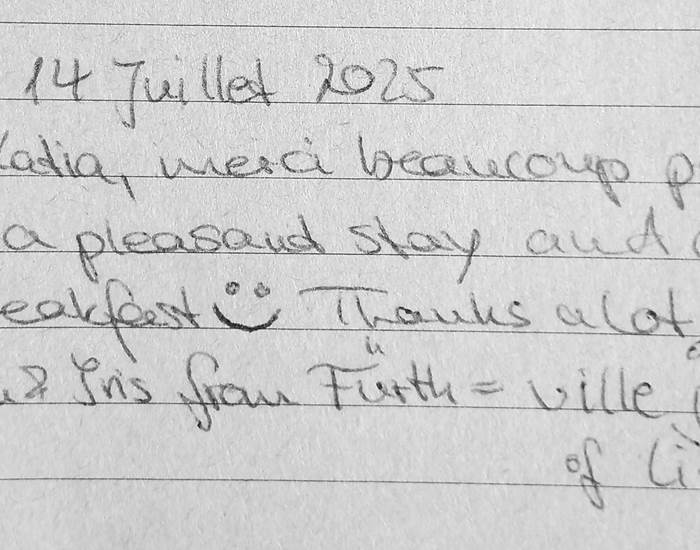 14 Juillet 2025
Katia, merci beaucoup p
a pleasand stay and
eakfast Thanks alot
& Iris from Fürth = ville
of Li